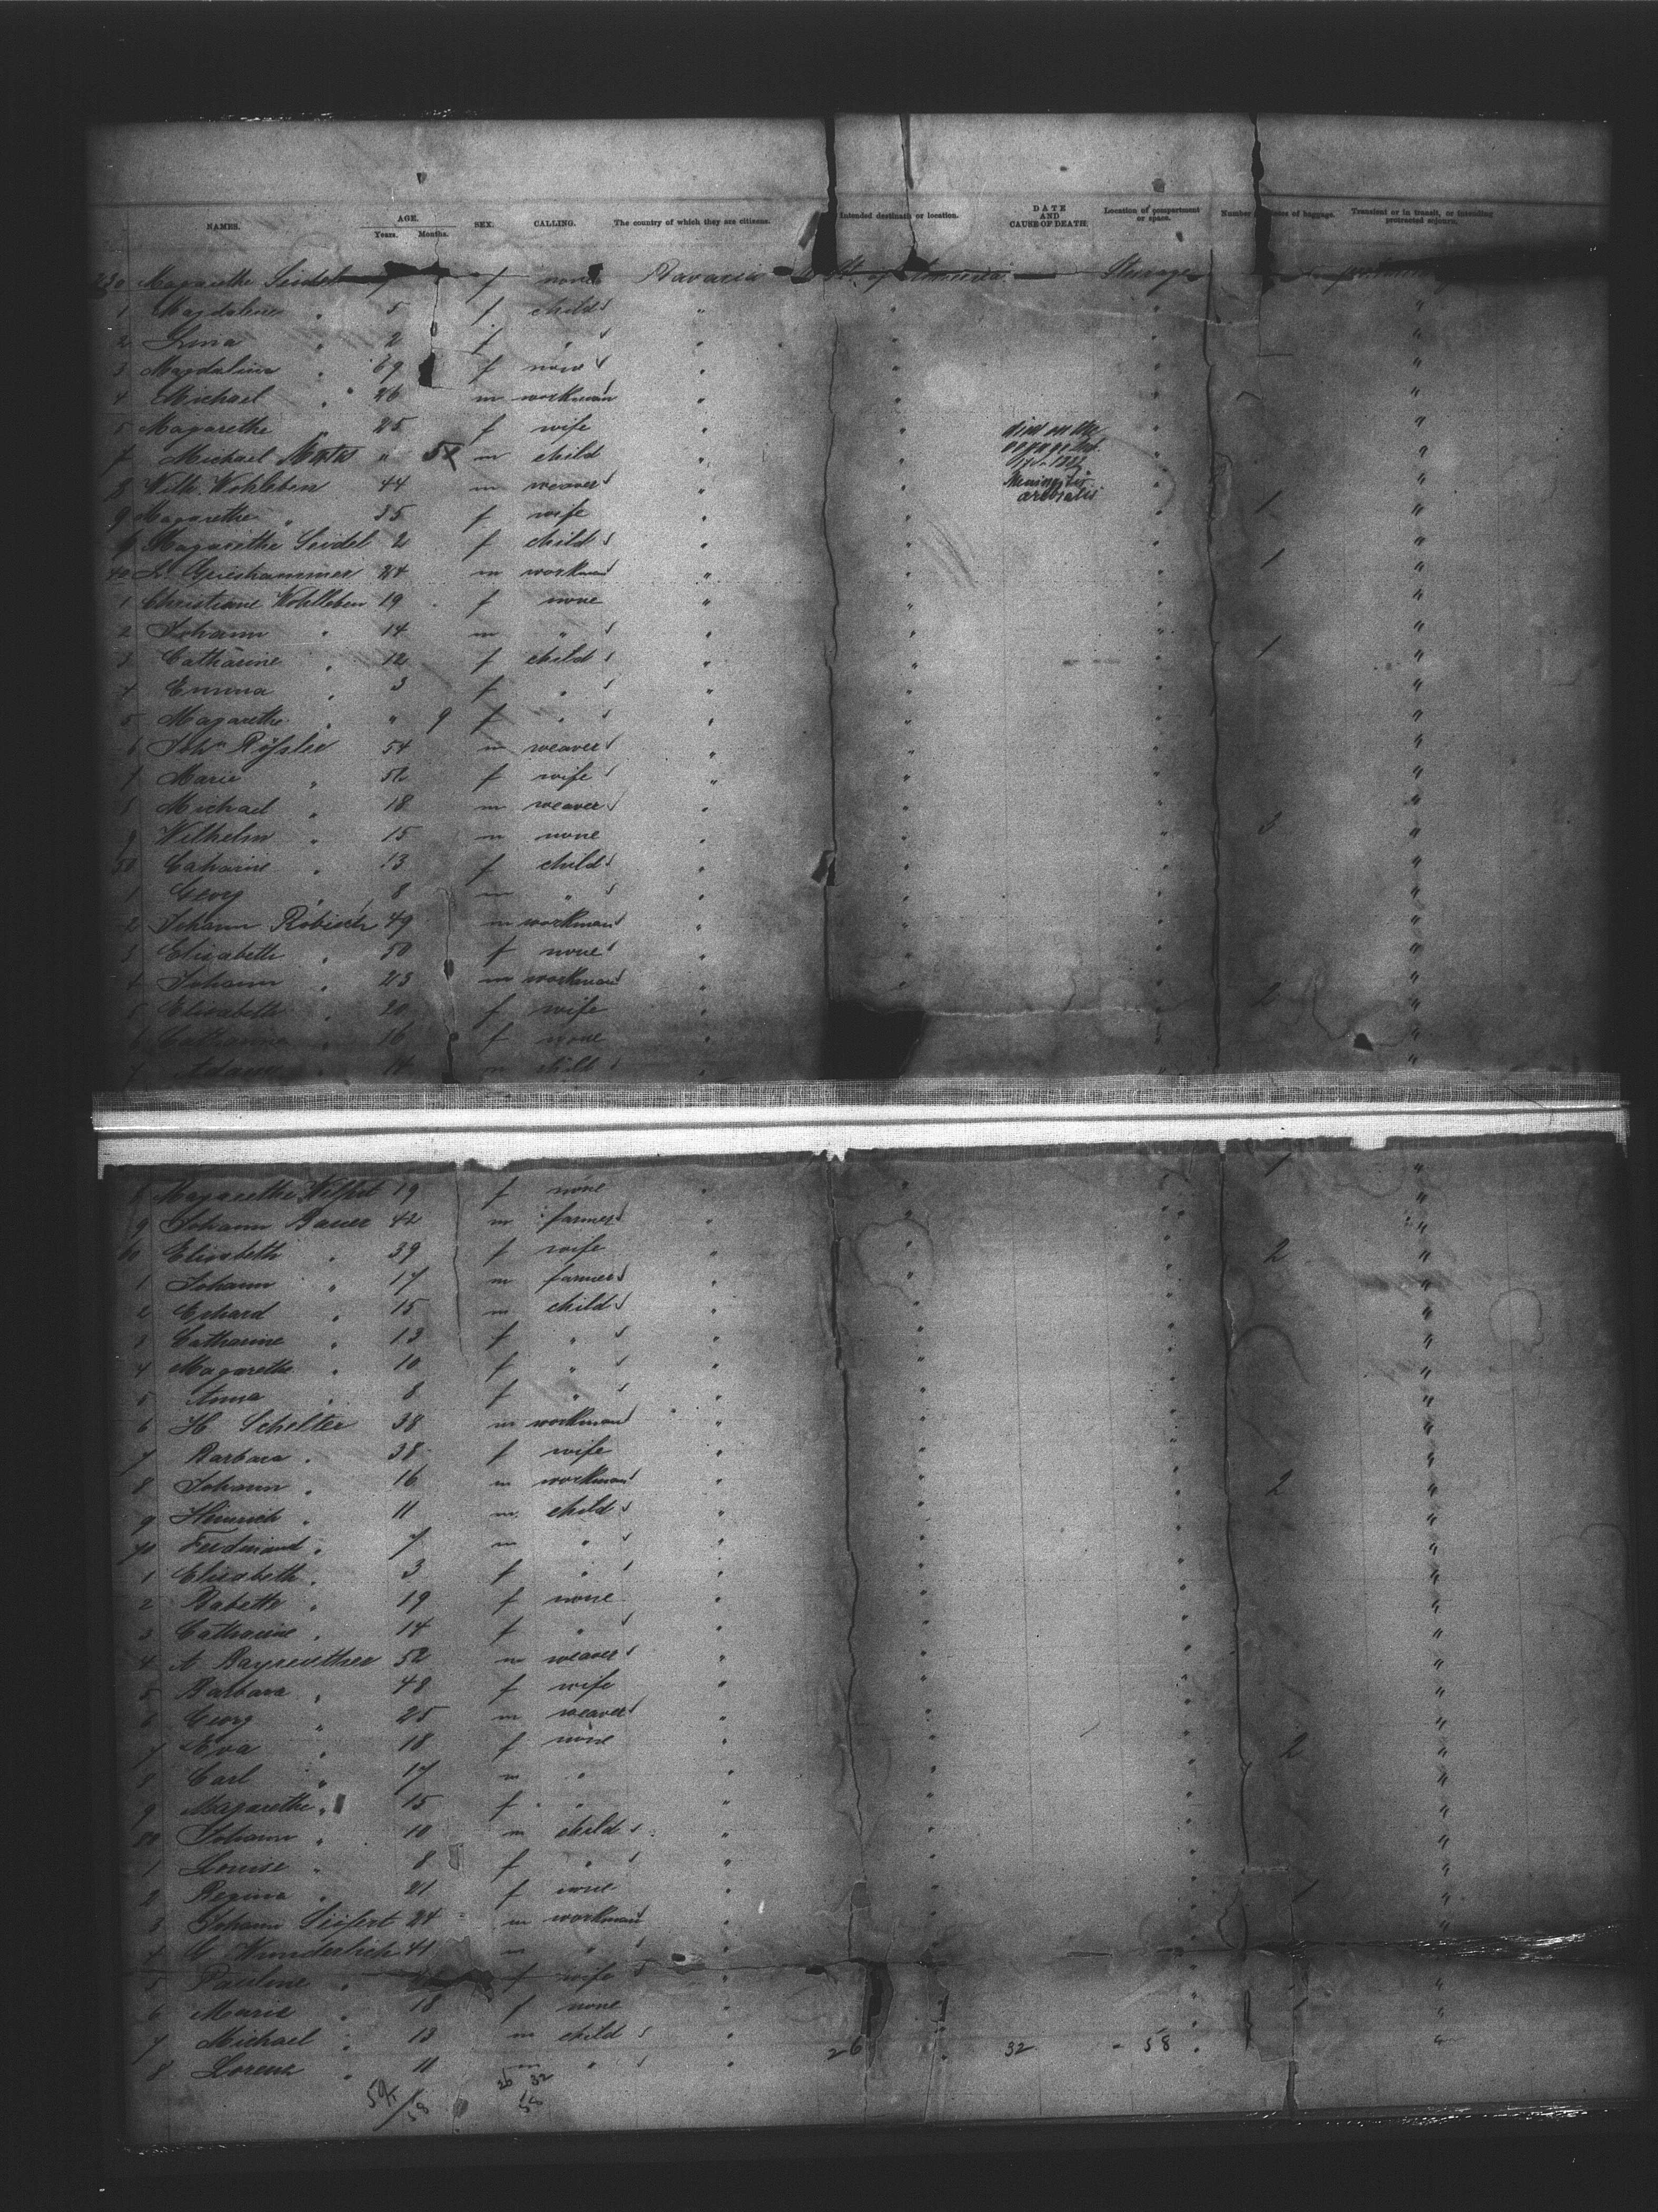 NAMES. AGE. Years. Months. SEX. CALLING. The country of which they are citizens. Intended destination or location. DATE AND CAUSE OF DEATH. Location of compartment or space. Number of baggage. Transient or in transit, or intending protracted sojourn.
230 Magarethe Seidel f none Bavaria St. of America Steerage
1 Magdalena " 5 f child " " " "
2 " 2 f " " " " "
3 Magdalina " 69 f none " " " "
4 Michael " 26 m workman " " " "
5 Magarethe 25 f wife " " " "
7 Michael " m child " died on the voyage " "
8 Wilh. Wohleben 44 m weaver " Meningitis " "
9 Magarethe " 35 f wife " " " 1 "
Magarethe Seidel 2 f child " " " "
40 Grieshammer 24 m workman " " " 1 "
1 Christiane Wohlleben 19 f none " " " "
2 Johann " 14 m " " " " "
3 Catharine " 12 f child " " " 1 "
4 Emma " 3 f " " " " "
5 Magarethe " " 9 f " " " " "
6 John Rössler 54 m weaver " " " "
7 Marie " f wife " " " "
8 Michael " 18 m weaver " " " "
9 Wilhelm " 15 m none " " " 3 "
50 Caharine " 13 f child " " " "
1 Georg " 8 m " " " " "
2 Johann Röbisch 49 m workman " " " "
3 Elisabeth " 50 f none " " " "
4 Johann " 23 m workman " " " "
5 Elisabeth " 20 f wife " " 2 "
6 Catharina " 16 f none " " "
7 Adam " 14 m child " " "
8 Magarethe Wilfert 19 f none " " " 1 "
9 Johann Bauer 42 m farmer " " " "
60 Elisabeth " 39 f wife " " " 2 "
1 Johann " 17 m farmer " " " "
2 Erhard " 15 m child " " " "
3 Catharine " 13 f " " " " "
4 Magarethe " 10 f " " " " "
5 Anna " 8 f " " " " "
6 H Schelter 38 m workman " " " "
7 Barbara " 38 f wife " " " "
8 Johann " 16 m workman " " " 2 "
9 Heinrich " 11 m child " " " "
70 Ferdinand " 7 m " " " " "
1 Elisabeth " 3 f " " " " "
2 Babette " 19 f none " " " "
3 Catharine " 14 f " " " " "
4 A Bayreuther 52 m weaver " " " "
5 Barbara " 48 f wife " " " "
6 Georg " 25 m weaver " " " "
7 Eva " 18 f none " " " 2 "
8 Carl " 17 m " " " " "
9 Magarethe " 15 f " " " " "
80 Johann " 10 m child " " " "
1 Louise " 8 f " " " " "
2 Regina " 21 f none " " " 1 "
3 Johann Seifert 24 m workman " " " "
4 G Wunderlich 41 m " " " " "
5 Pauline " f wife " " "
6 Marie " 18 f none " " 1 "
7 Michael " 13 m child " " "
8 Lorenz " 11 m " " 26 32 58 "
26 32
58